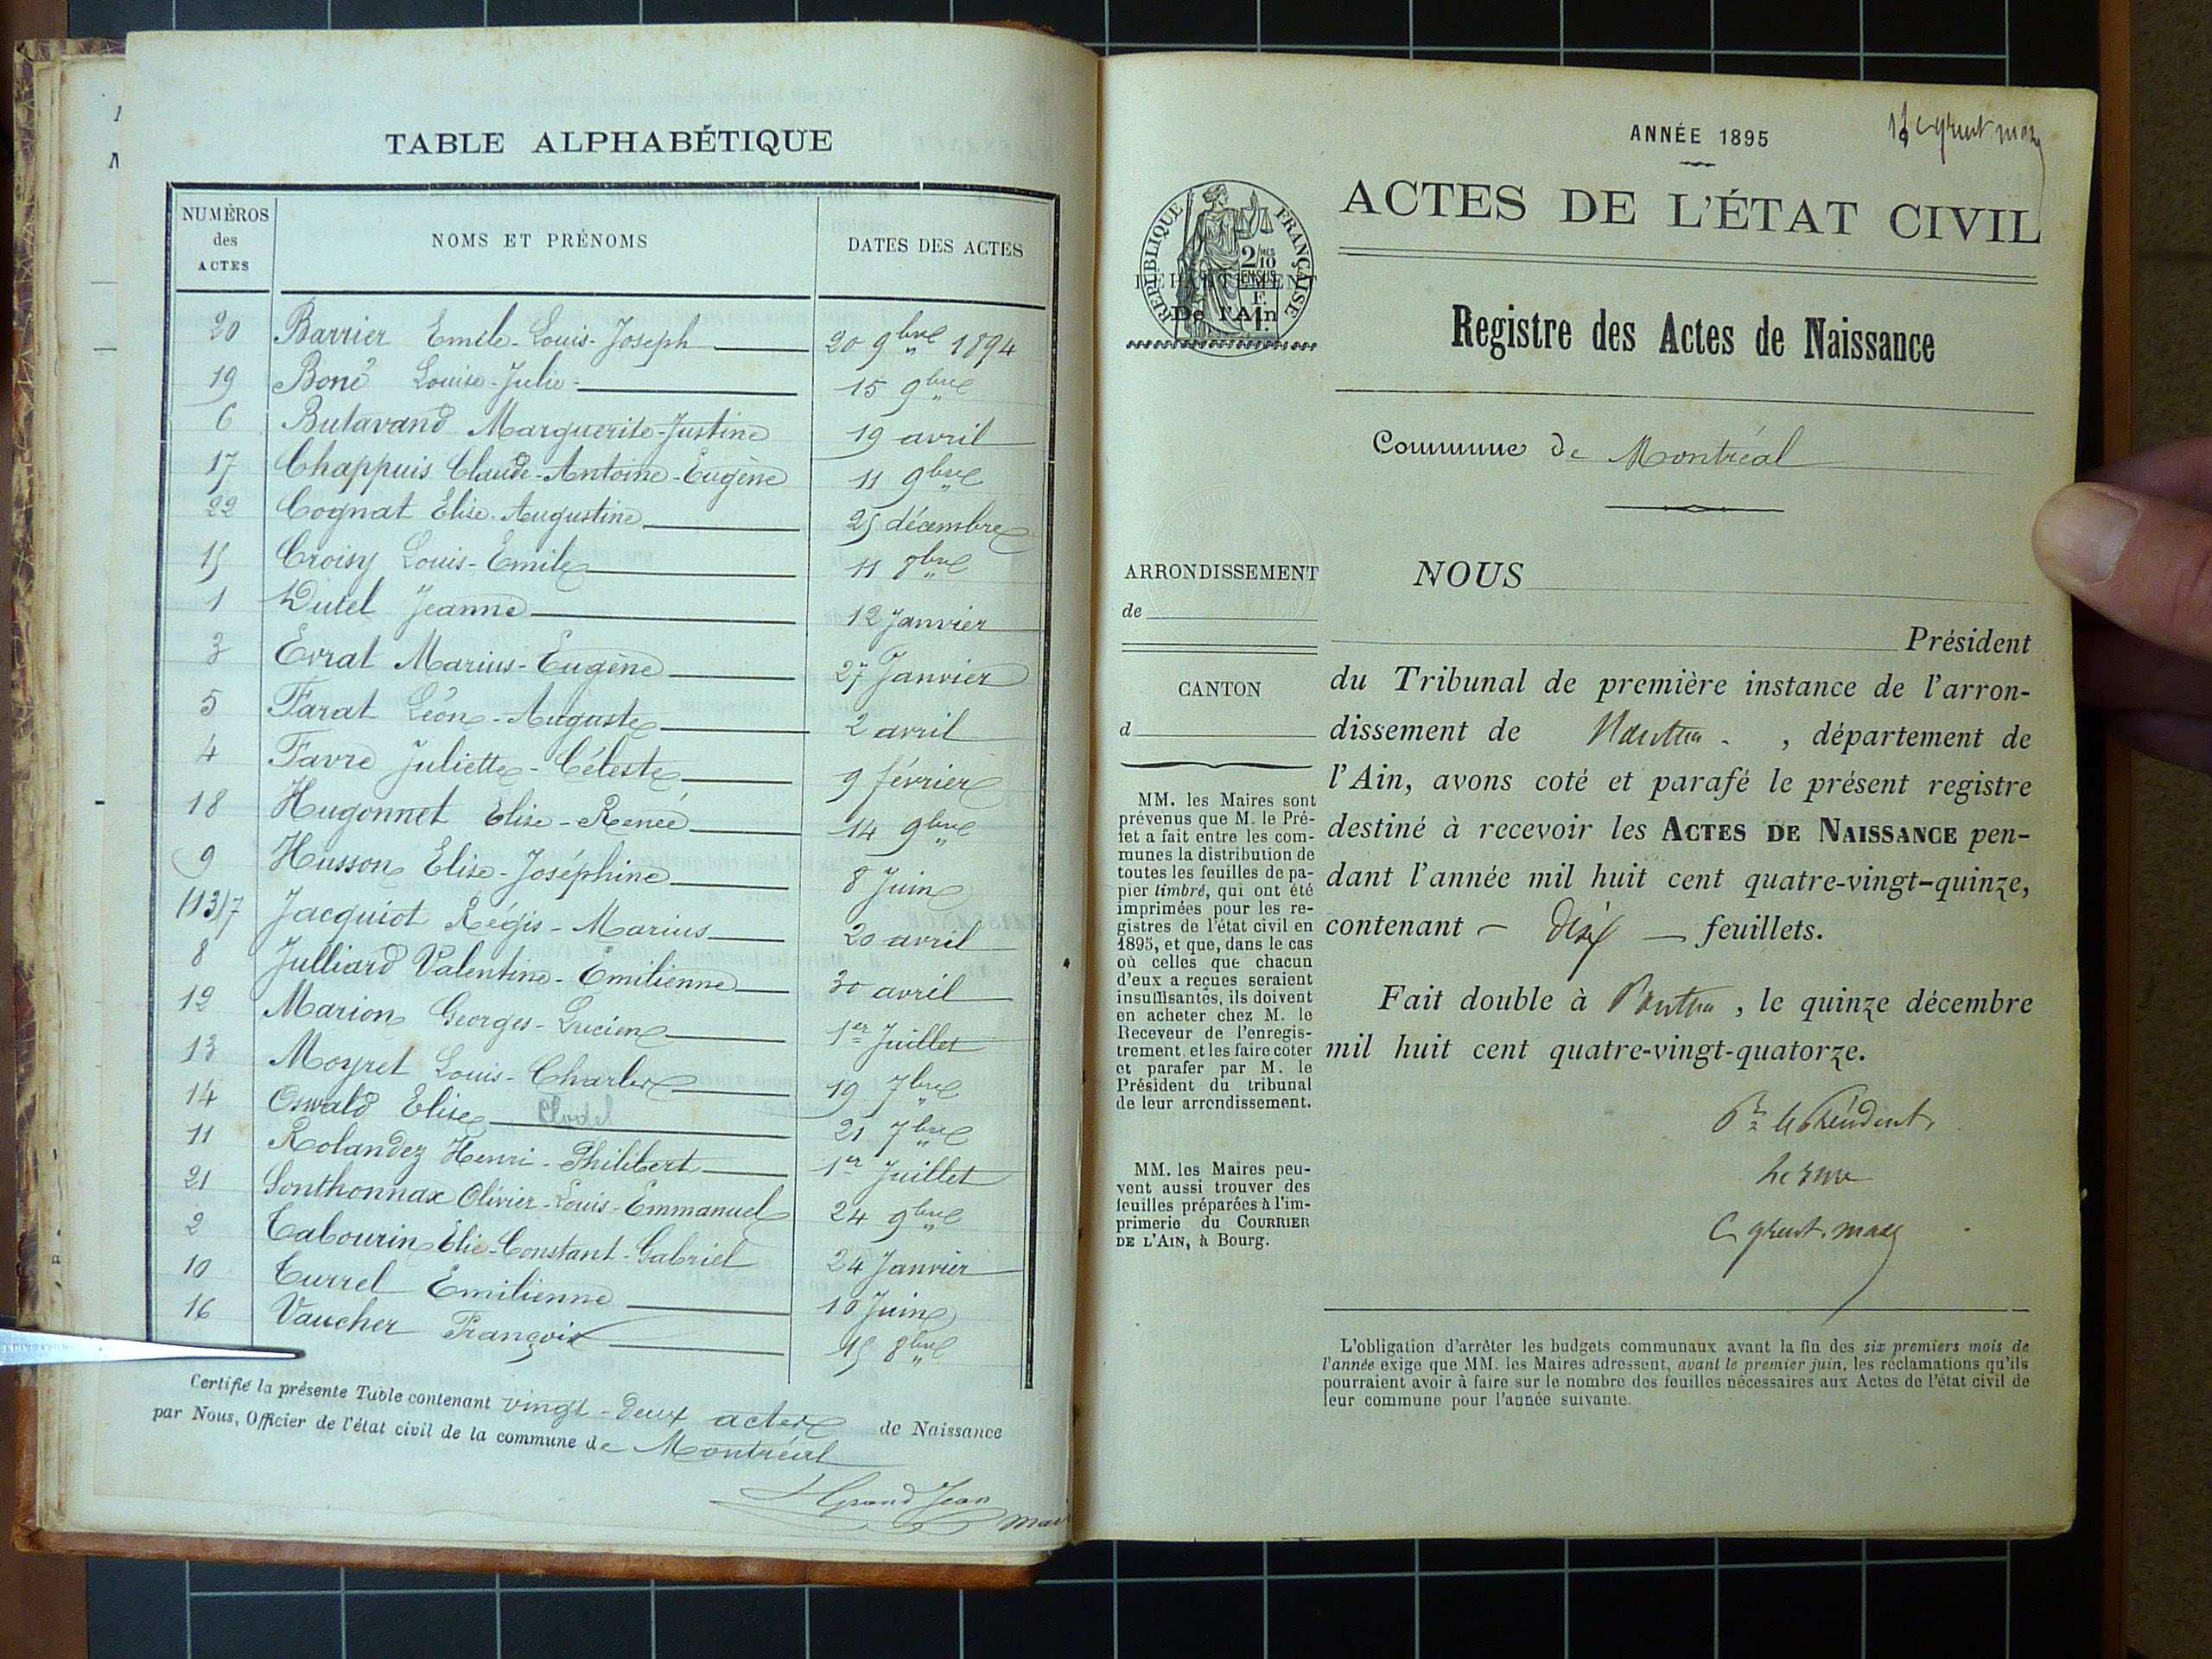 TABLE ALPHABÉTIQUE
NUMÉROS des ACTES
NOMS ET PRÉNOMS
DATES DES ACTES
20 Barrier Emile-Louis-Joseph 20 9bre 1894
19 Boné Louise-Julie 15 9bre
6 Butavand Marguerite-Justine 19 avril
17 Chappuis Claude-Antoine-Eugène 11 9bre
22 Cognat Elise-Augustine 25 décembre
15 Croisy Louis-Emile 11 8bre
1 Dutel Jeanne 12 Janvier
3 Evrat Marius-Eugène 27 Janvier
5 Farat Léon-Auguste 2 avril
4 Favre Juliette-Céleste 9 février
18 Hugonnet Elise-Renée 14 9bre
9 Husson Elise-Joséphine 8 Juin
(13)7 Jacquiot Régis-Marius 20 avril
8 Julliard Valentine-Emilienne 30 avril
12 Marion Georges-Lucien 1er Juillet
13 Moyret Louis-Charles 19 7bre
14 Oswald Elise Clodel 21 7bre
11 Rolandez Henri-Philibert 1er Juillet
21 Sonthonnax Olivier-Louis-Emmanuel 24 9bre
2 Tabourin Elie-Constant-Gabriel 24 Janvier
10 Turrel Emilienne 10 Juin
16 Vaucher François 15 8bre
Certifié la présente Table contenant vingt-deux actes de Naissance
par Nous, Officier de l'état civil de la commune de Montréal
Grand Jean
ANNÉE 1895
ACTES DE L'ÉTAT CIVIL
RÉPUBLIQUE FRANÇAISE
2/10 EN SUS
DÉPARTEMENT
De l'Ain
Registre des Actes de Naissance
Commune de Montréal
ARRONDISSEMENT
de
CANTON
d
MM. les Maires sont
prévenus que M. le Pré-
fet a fait entre les com-
munes la distribution de
toutes les feuilles de pa-
pier timbré, qui ont été
imprimées pour les re-
gistres de l'état civil en
1895, et que, dans le cas
où celles que chacun
d'eux a reçues seraient
insuffisantes, ils doivent
en acheter chez M. le
Receveur de l'enregis-
trement et les faire coter
et parafer par M. le
Président du tribunal
de leur arrondissement.
MM. les Maires peu-
vent aussi trouver des
feuilles préparées à l'im-
primerie du COURRIER
DE L'AIN, à Bourg.
NOUS
Président
du Tribunal de première instance de l'arron-
dissement de Nantua, département de
l'Ain, avons coté et parafé le présent registre
destiné à recevoir les ACTES DE NAISSANCE pen-
dant l'année mil huit cent quatre-vingt-quinze,
contenant feuillets.
Fait double à Nantua, le quinze décembre
mil huit cent quatre-vingt-quatorze.
Pr le Président,
L'obligation d'arrêter les budgets communaux avant la fin des six premiers mois de
l'année exige que MM. les Maires adressent, avant le premier juin, les réclamations qu'ils
pourraient avoir à faire sur le nombre des feuilles nécessaires aux Actes de l'état civil de
leur commune pour l'année suivante.